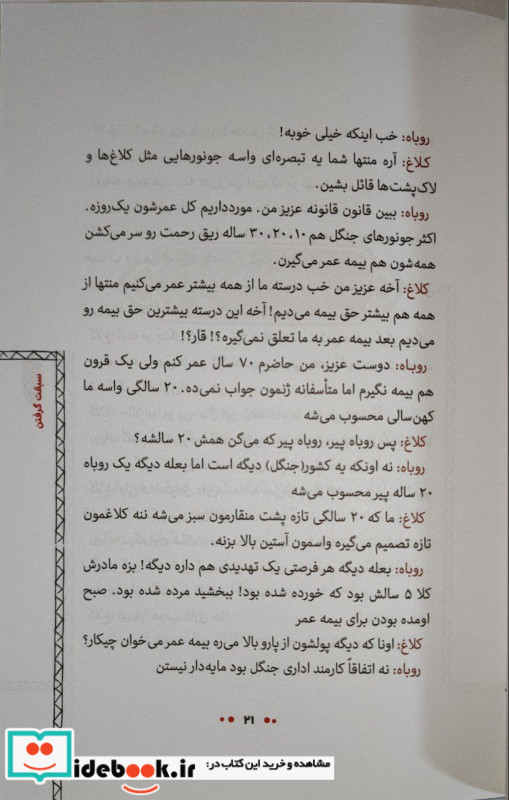 روباه: خب اینکه خیلی خوبه!
کلاغ: آره منتها شما یه تبصره‌ای واسه جونورهایی مثل کلاغ‌ها و
لاک‌پشت‌ها قائل بشین.
روباه: ببین قانون قانونه عزیز من. مورد‌داریم کل عمرشون یک‌روزه.
اکثر جونورهای جنگل هم ۱۰، ۲۰، ۳۰ ساله ریق رحمت رو سر می‌کشن
همه‌شون هم بیمه عمر می‌گیرن.
کلاغ: آخه عزیز من خب درسته ما از همه بیشتر عمر می‌کنیم منتها از
همه هم بیشتر حق بیمه می‌دیم! آخه این درسته بیشترین حق بیمه رو
می‌دیم بعد بیمه عمر به ما تعلق نمی‌گیره؟! قار؟!
روباه: دوست عزیز، من حاضرم ۷۰ سال عمر کنم ولی یک قرون
هم بیمه نگیرم اما متأسفانه ژنمون جواب نمی‌ده. ۲۰ سالگی واسه ما
کهن‌سالی محسوب می‌شه
کلاغ: پس روباه پیر، روباه پیر که می‌گن همش ۲۰ سالشه؟
روباه: نه اونکه یه کشور(جنگل) دیگه است اما بعله دیگه یک روباه
۲۰ ساله پیر محسوب می‌شه
کلاغ: ما که ۲۰ سالگی تازه پشت منقارمون سبز می‌شه ننه کلاغمون
تازه تصمیم می‌گیره واسمون آستین بالا بزنه.
روباه: بعله دیگه هر فرصتی یک تهدیدی هم داره دیگه! بزه مادرش
کلا ۵ سالش بود که خورده شده بود! ببخشید مرده شده بود. صبح
اومده بودن برای بیمه عمر
کلاغ: اونا که دیگه پولشون از پارو بالا می‌ره بیمه عمر می‌خوان چیکار؟
روباه: نه اتفاقاً کارمند اداری جنگل بود مایه‌دار نیستن
سبقت گرفتن
۲۱
مشاهده و خرید این کتاب در:
idebook.ir